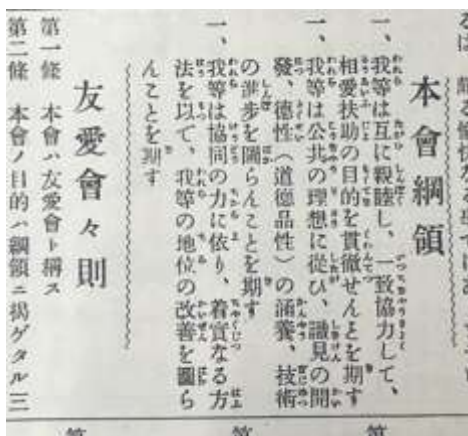 本會綱領
一、我等は互に親睦し、一致協力して、
相愛扶助の目的を貫徹せんとを期す
一、我等は公共の理想に從ひ、識見の開
發、德性（道德品性）の涵養、技術
の進步を圖らんことを期す
一、我等は協同の力に依り、着實なる方
法を以て、我等の地位の改善を圖ら
んことを期す
友愛會々則
第一條　本會ハ友愛會ト稱ス
第二條　本會ノ目的ハ綱領ニ揭ゲタル三